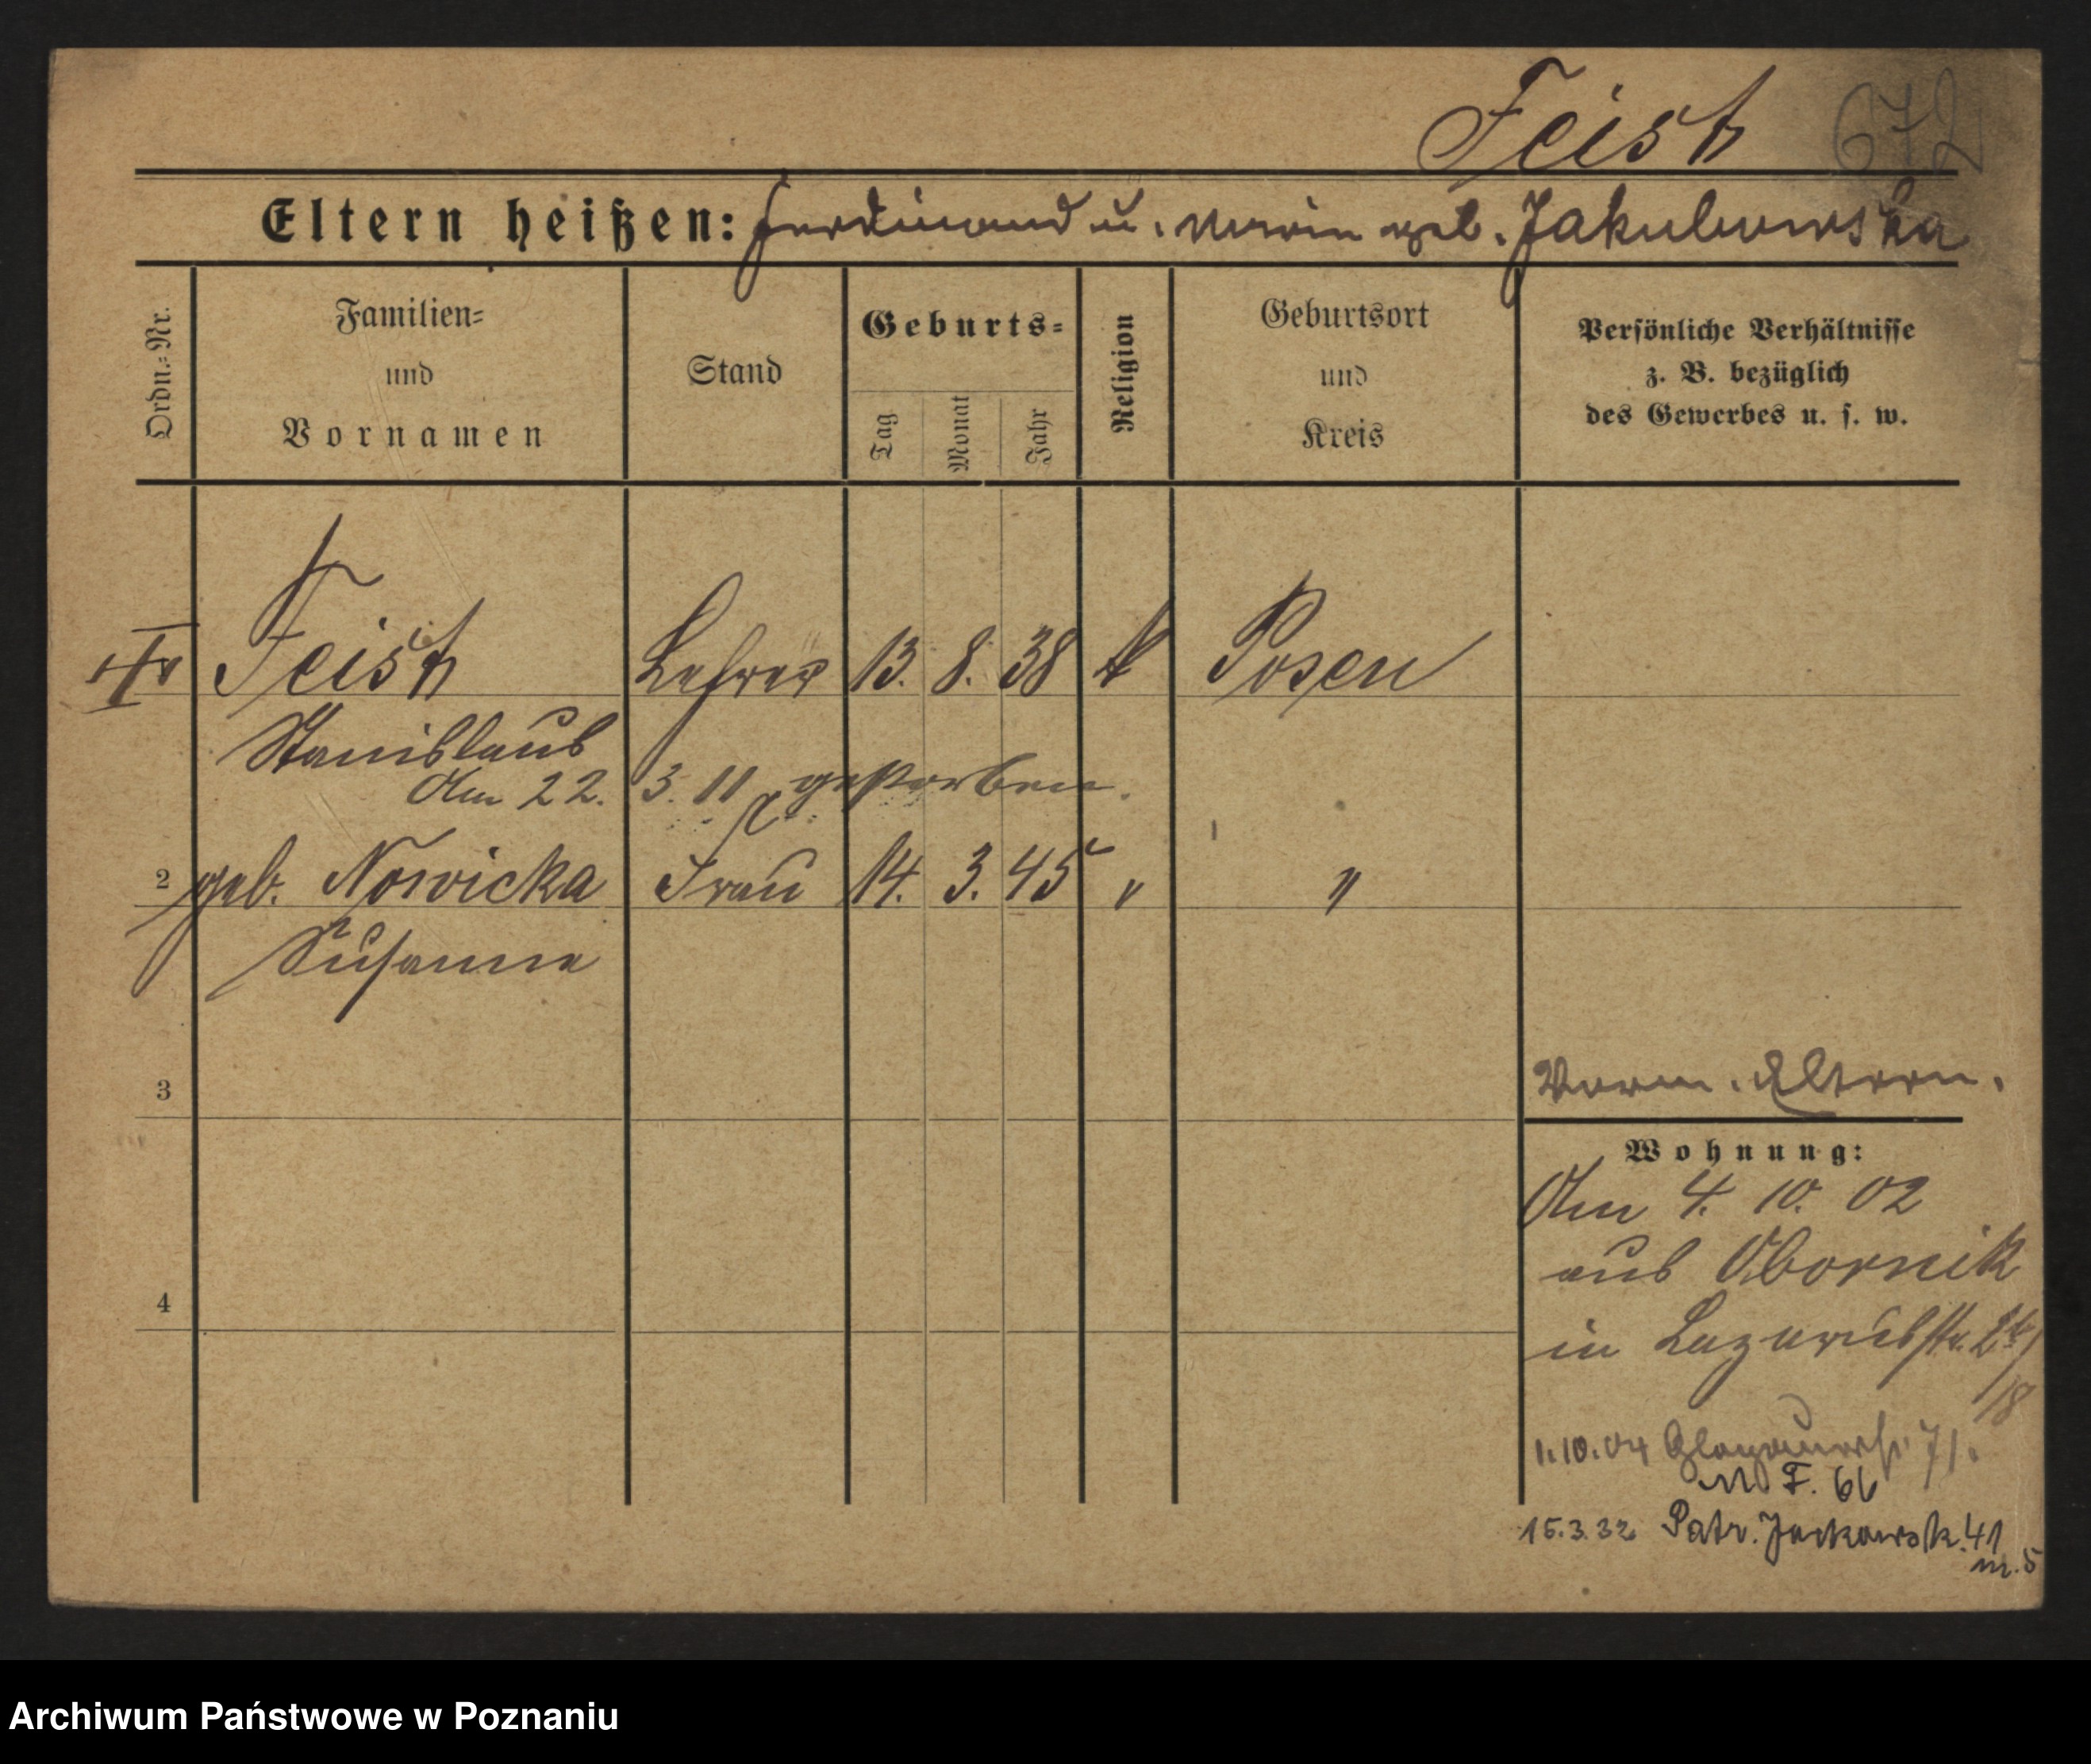 Feist 672
Eltern heißen: Ferdinand u. Maria geb. Jakubowska
Ordn.-Nr.
Familien-
und
Vornamen
Stand
Geburts-
Tag
Monat
Jahr
Religion
Geburtsort
und
Kreis
Persönliche Verhältnisse
z. B. bezüglich
des Gewerbes u. s. w.
Feist Lehrer 13. 8. 38 k Posen
Stanislaus
Am 22. 3. 11 gestorben.
2 geb. Nowicka Frau 14. 3. 45 " "
Susanna
3
Verm. Eltern.
Wohnung:
Am 4. 10. 02
aus Obornik
in Lazarusstr.
18
4
1.10.04 Glogauerstr. 71.
F. 66
15.3.32 Patr. Jackowsk. 41
m. 5
Archiwum Państwowe w Poznaniu